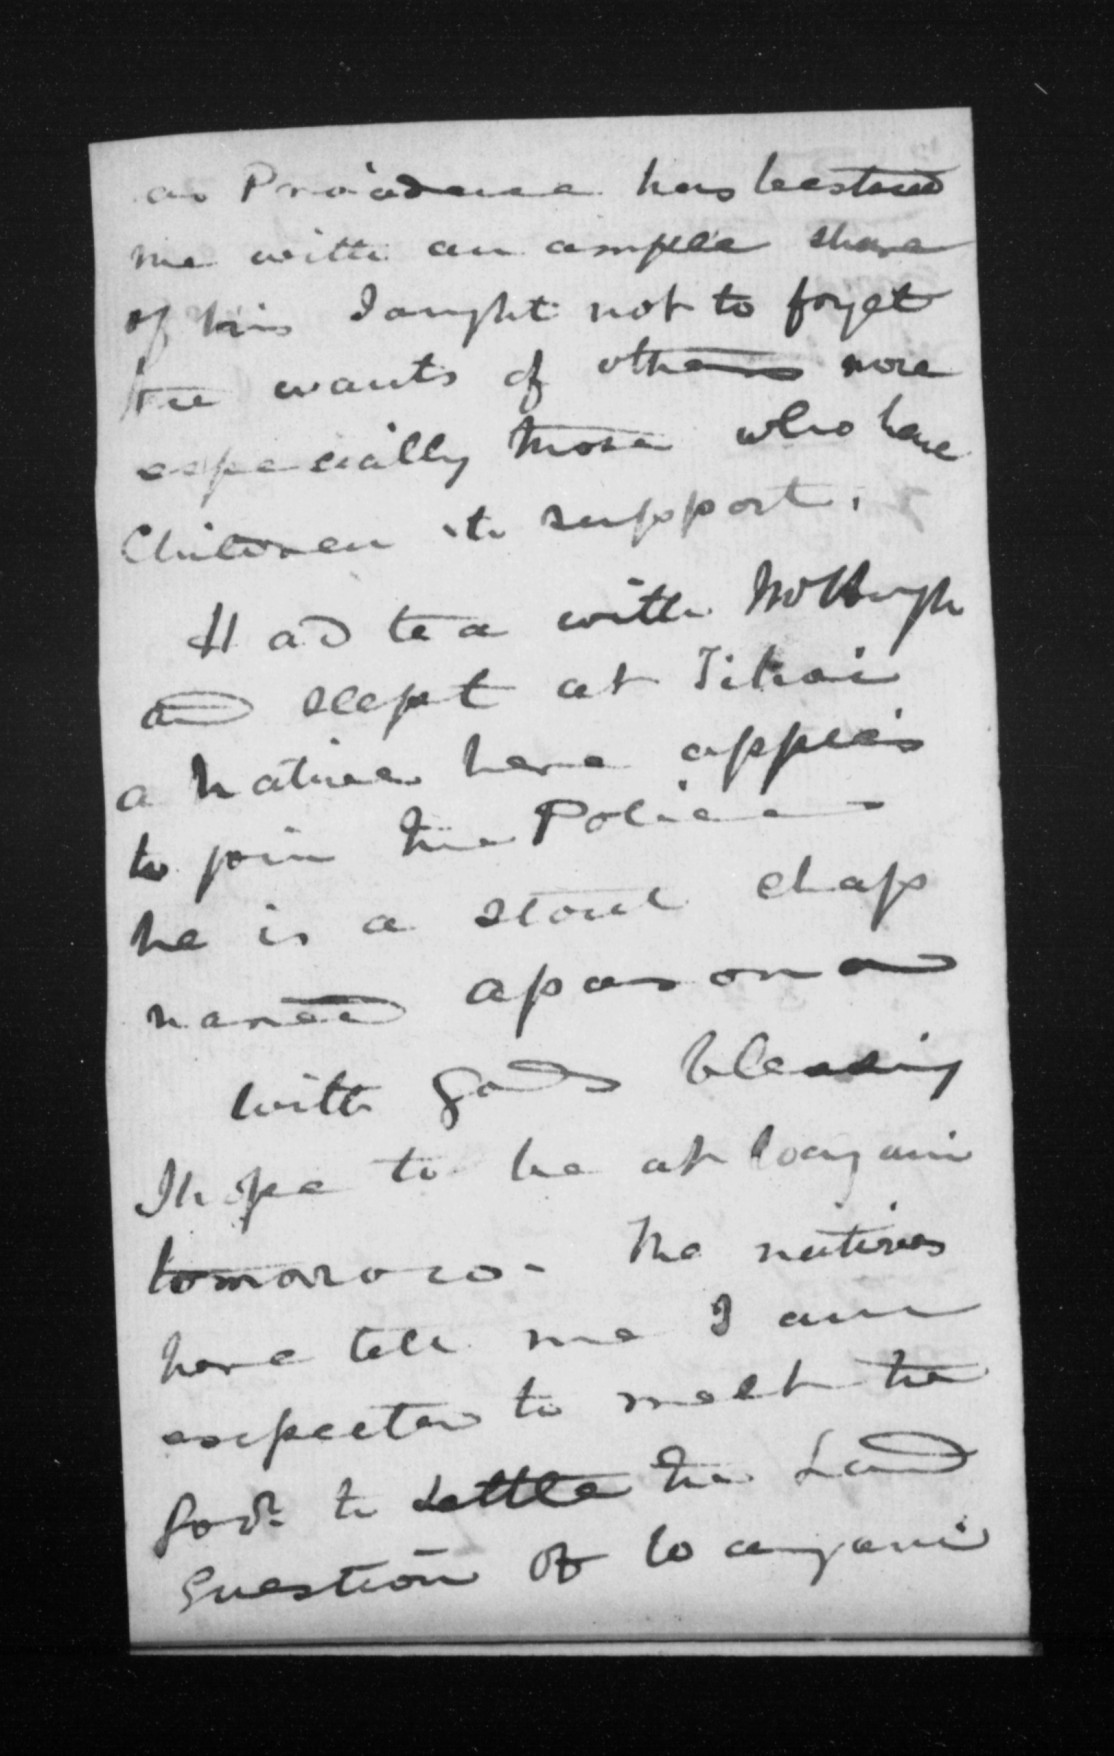 as Providence has bestowed
me with an ample share
of his I aught not to forget
the wants of others more
especially those who have
Children to support.
Had tea with McHugh
and slept at Tikoi
a native here applies
to join the Police
he is a stout chap
named
with gods blessing
I hope to be at Waganui
tomorow - The natives
here tell me I am
expected to meet the
Govr. to Settle the Land
Question of Wanganui